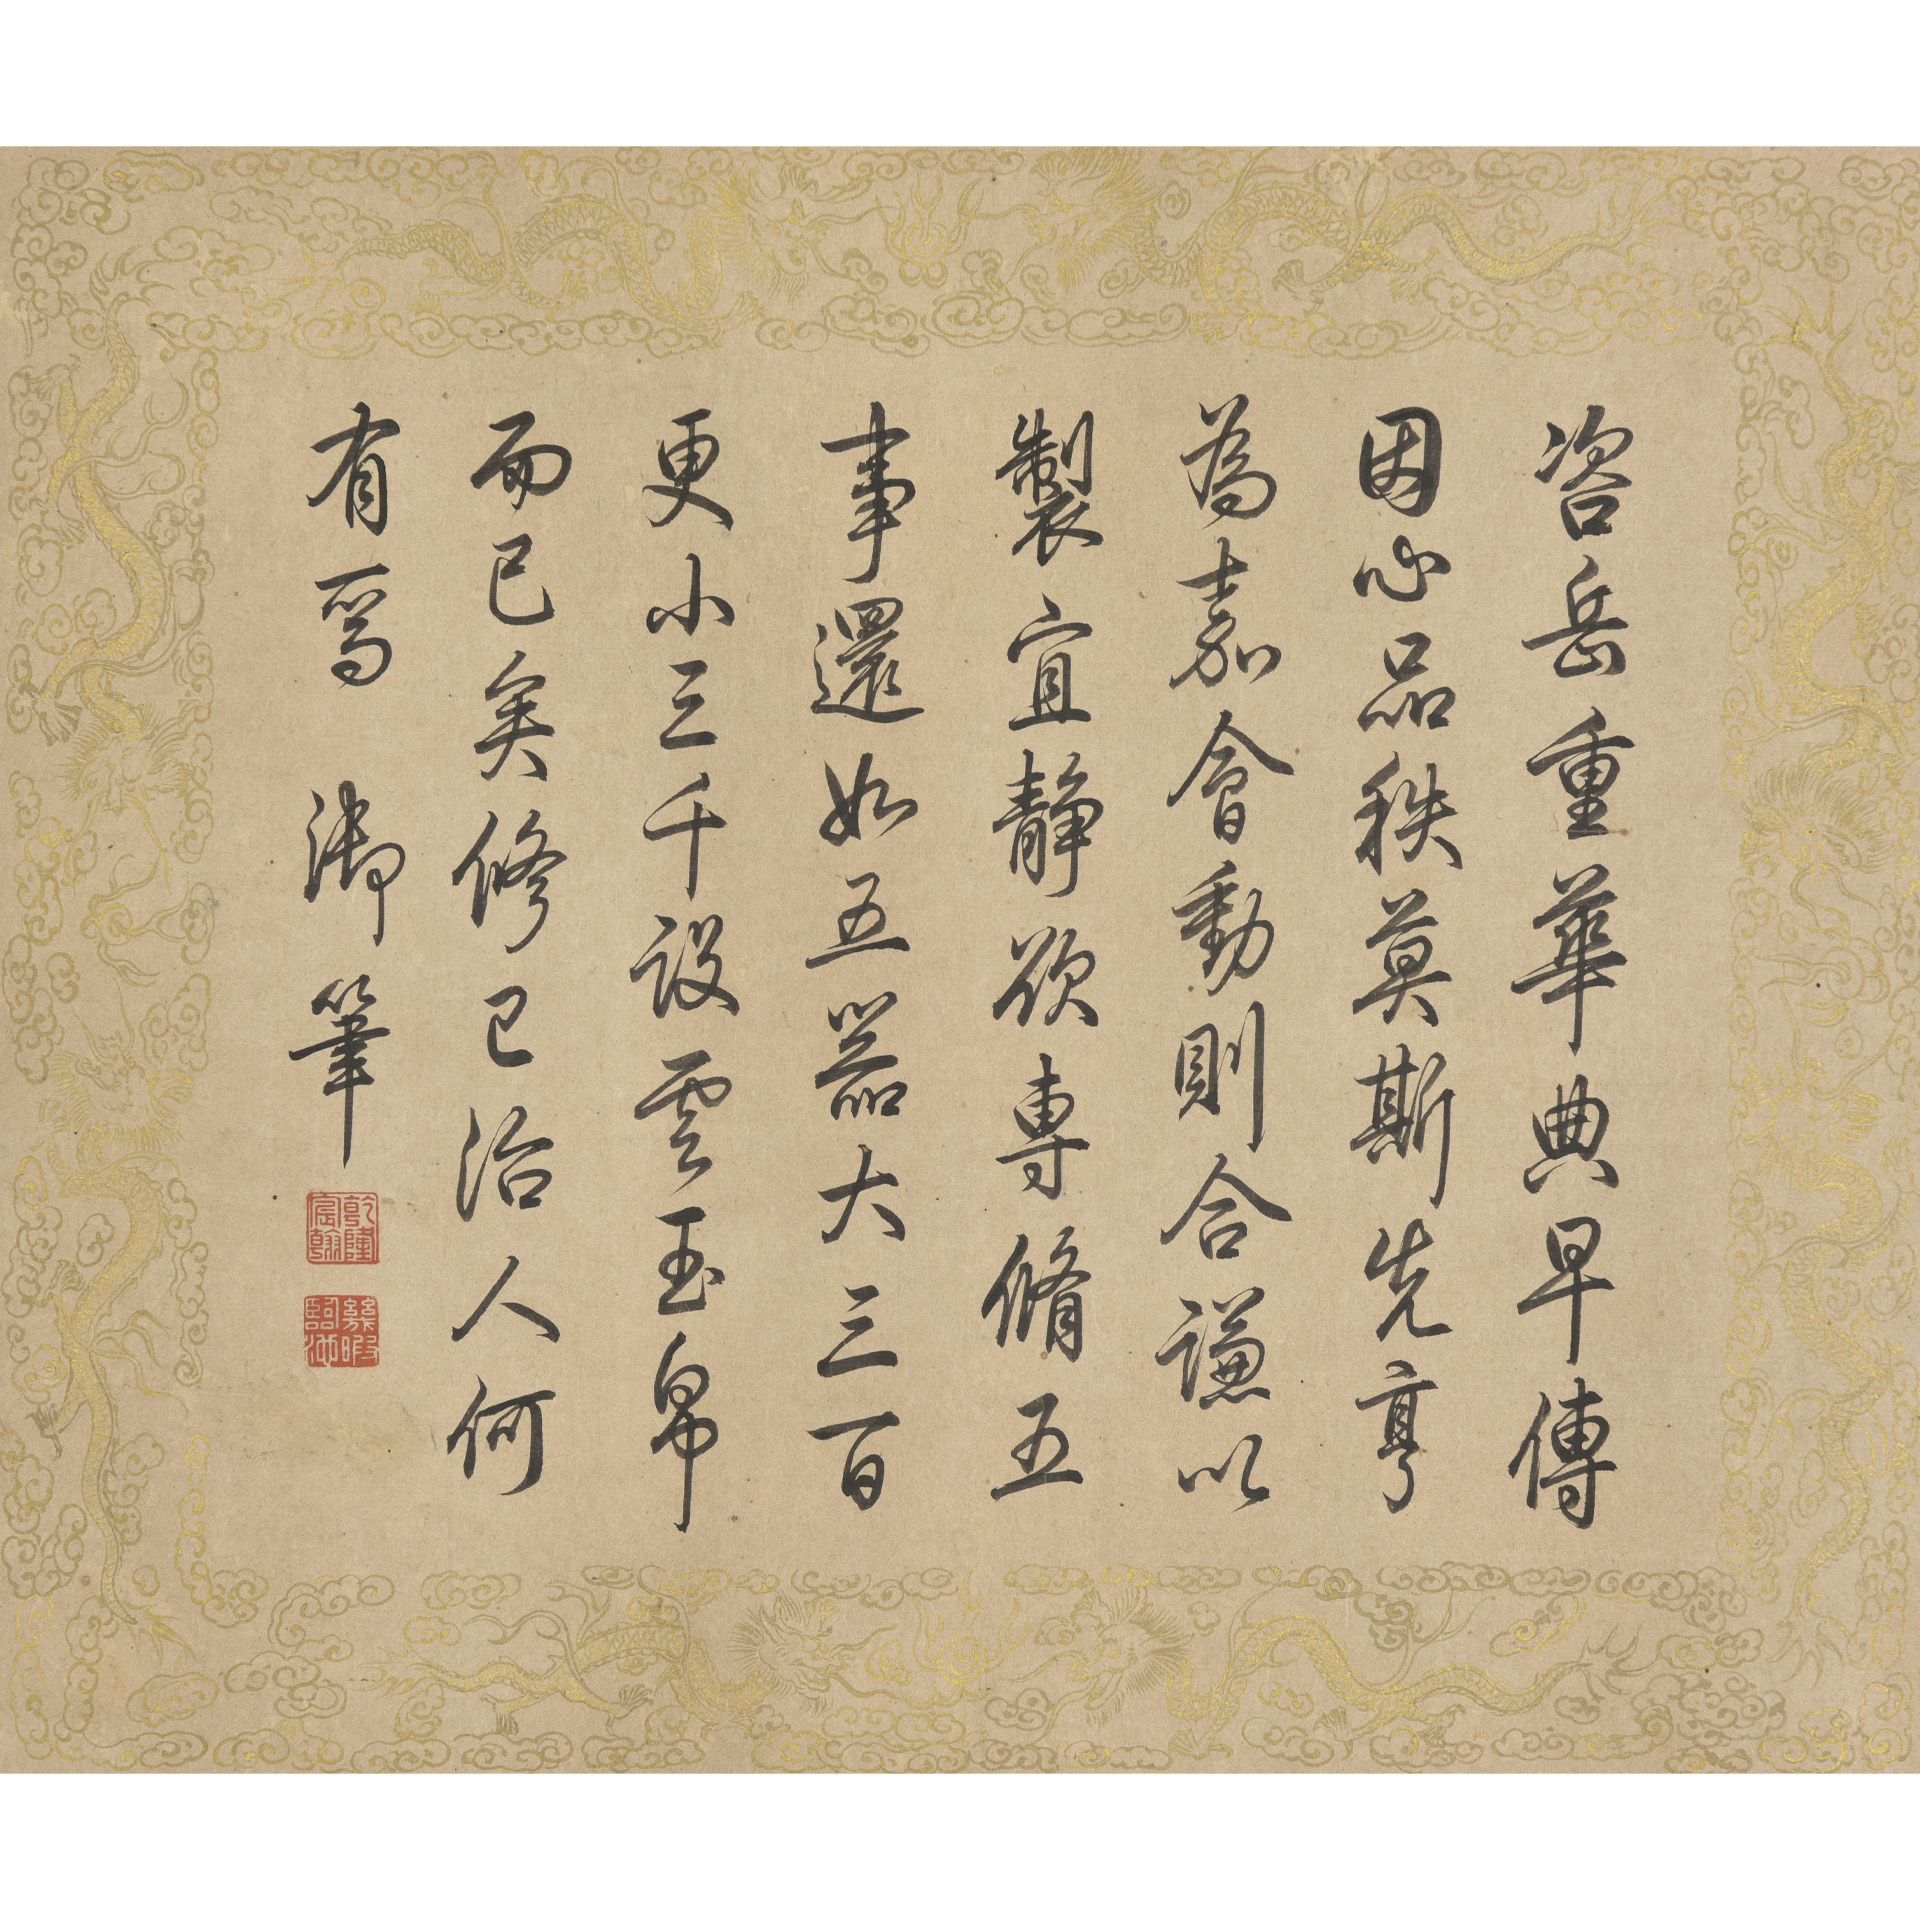 咨岳重華典早傳
因心品秩莫斯先亨
為嘉會動則合謙以
製宜靜欲專脩五
事還如五器大三百
更小三千設雲玉帛
而已矣修己治人何
有焉 御筆
乾隆宸翰
幾暇臨池